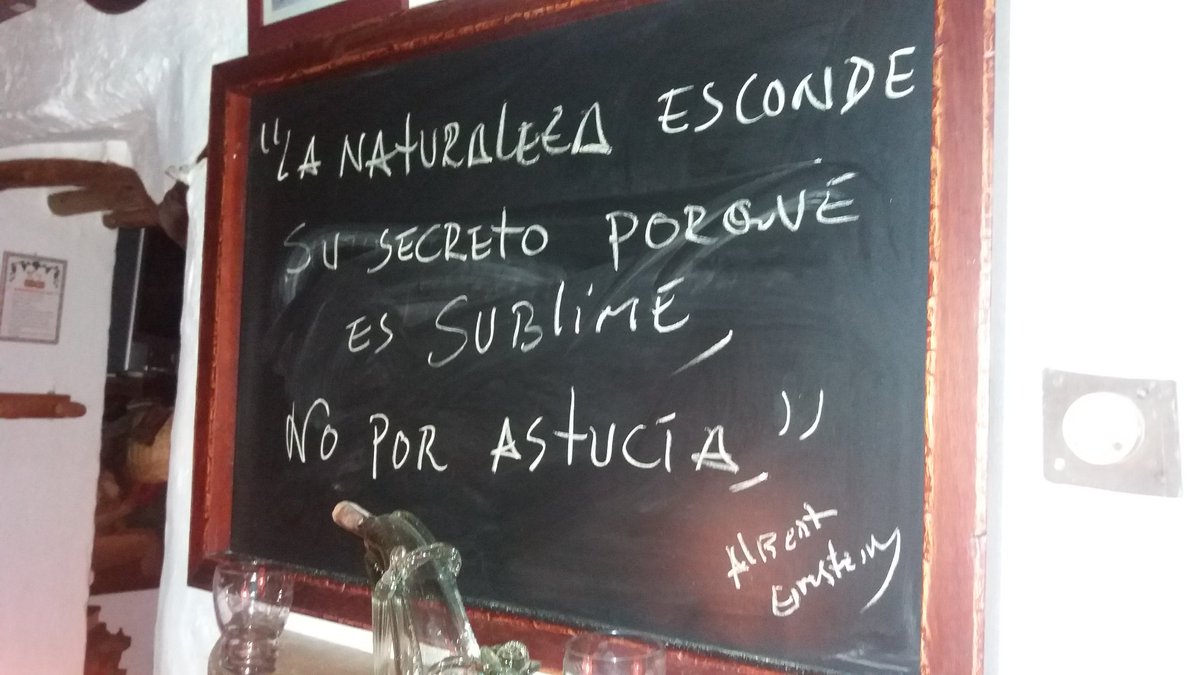 "LA NATURALEZA ESCONDE
SU SECRETO PORQUE
ES SUBLIME,
NO POR ASTUCIA"
Albert
Einstein